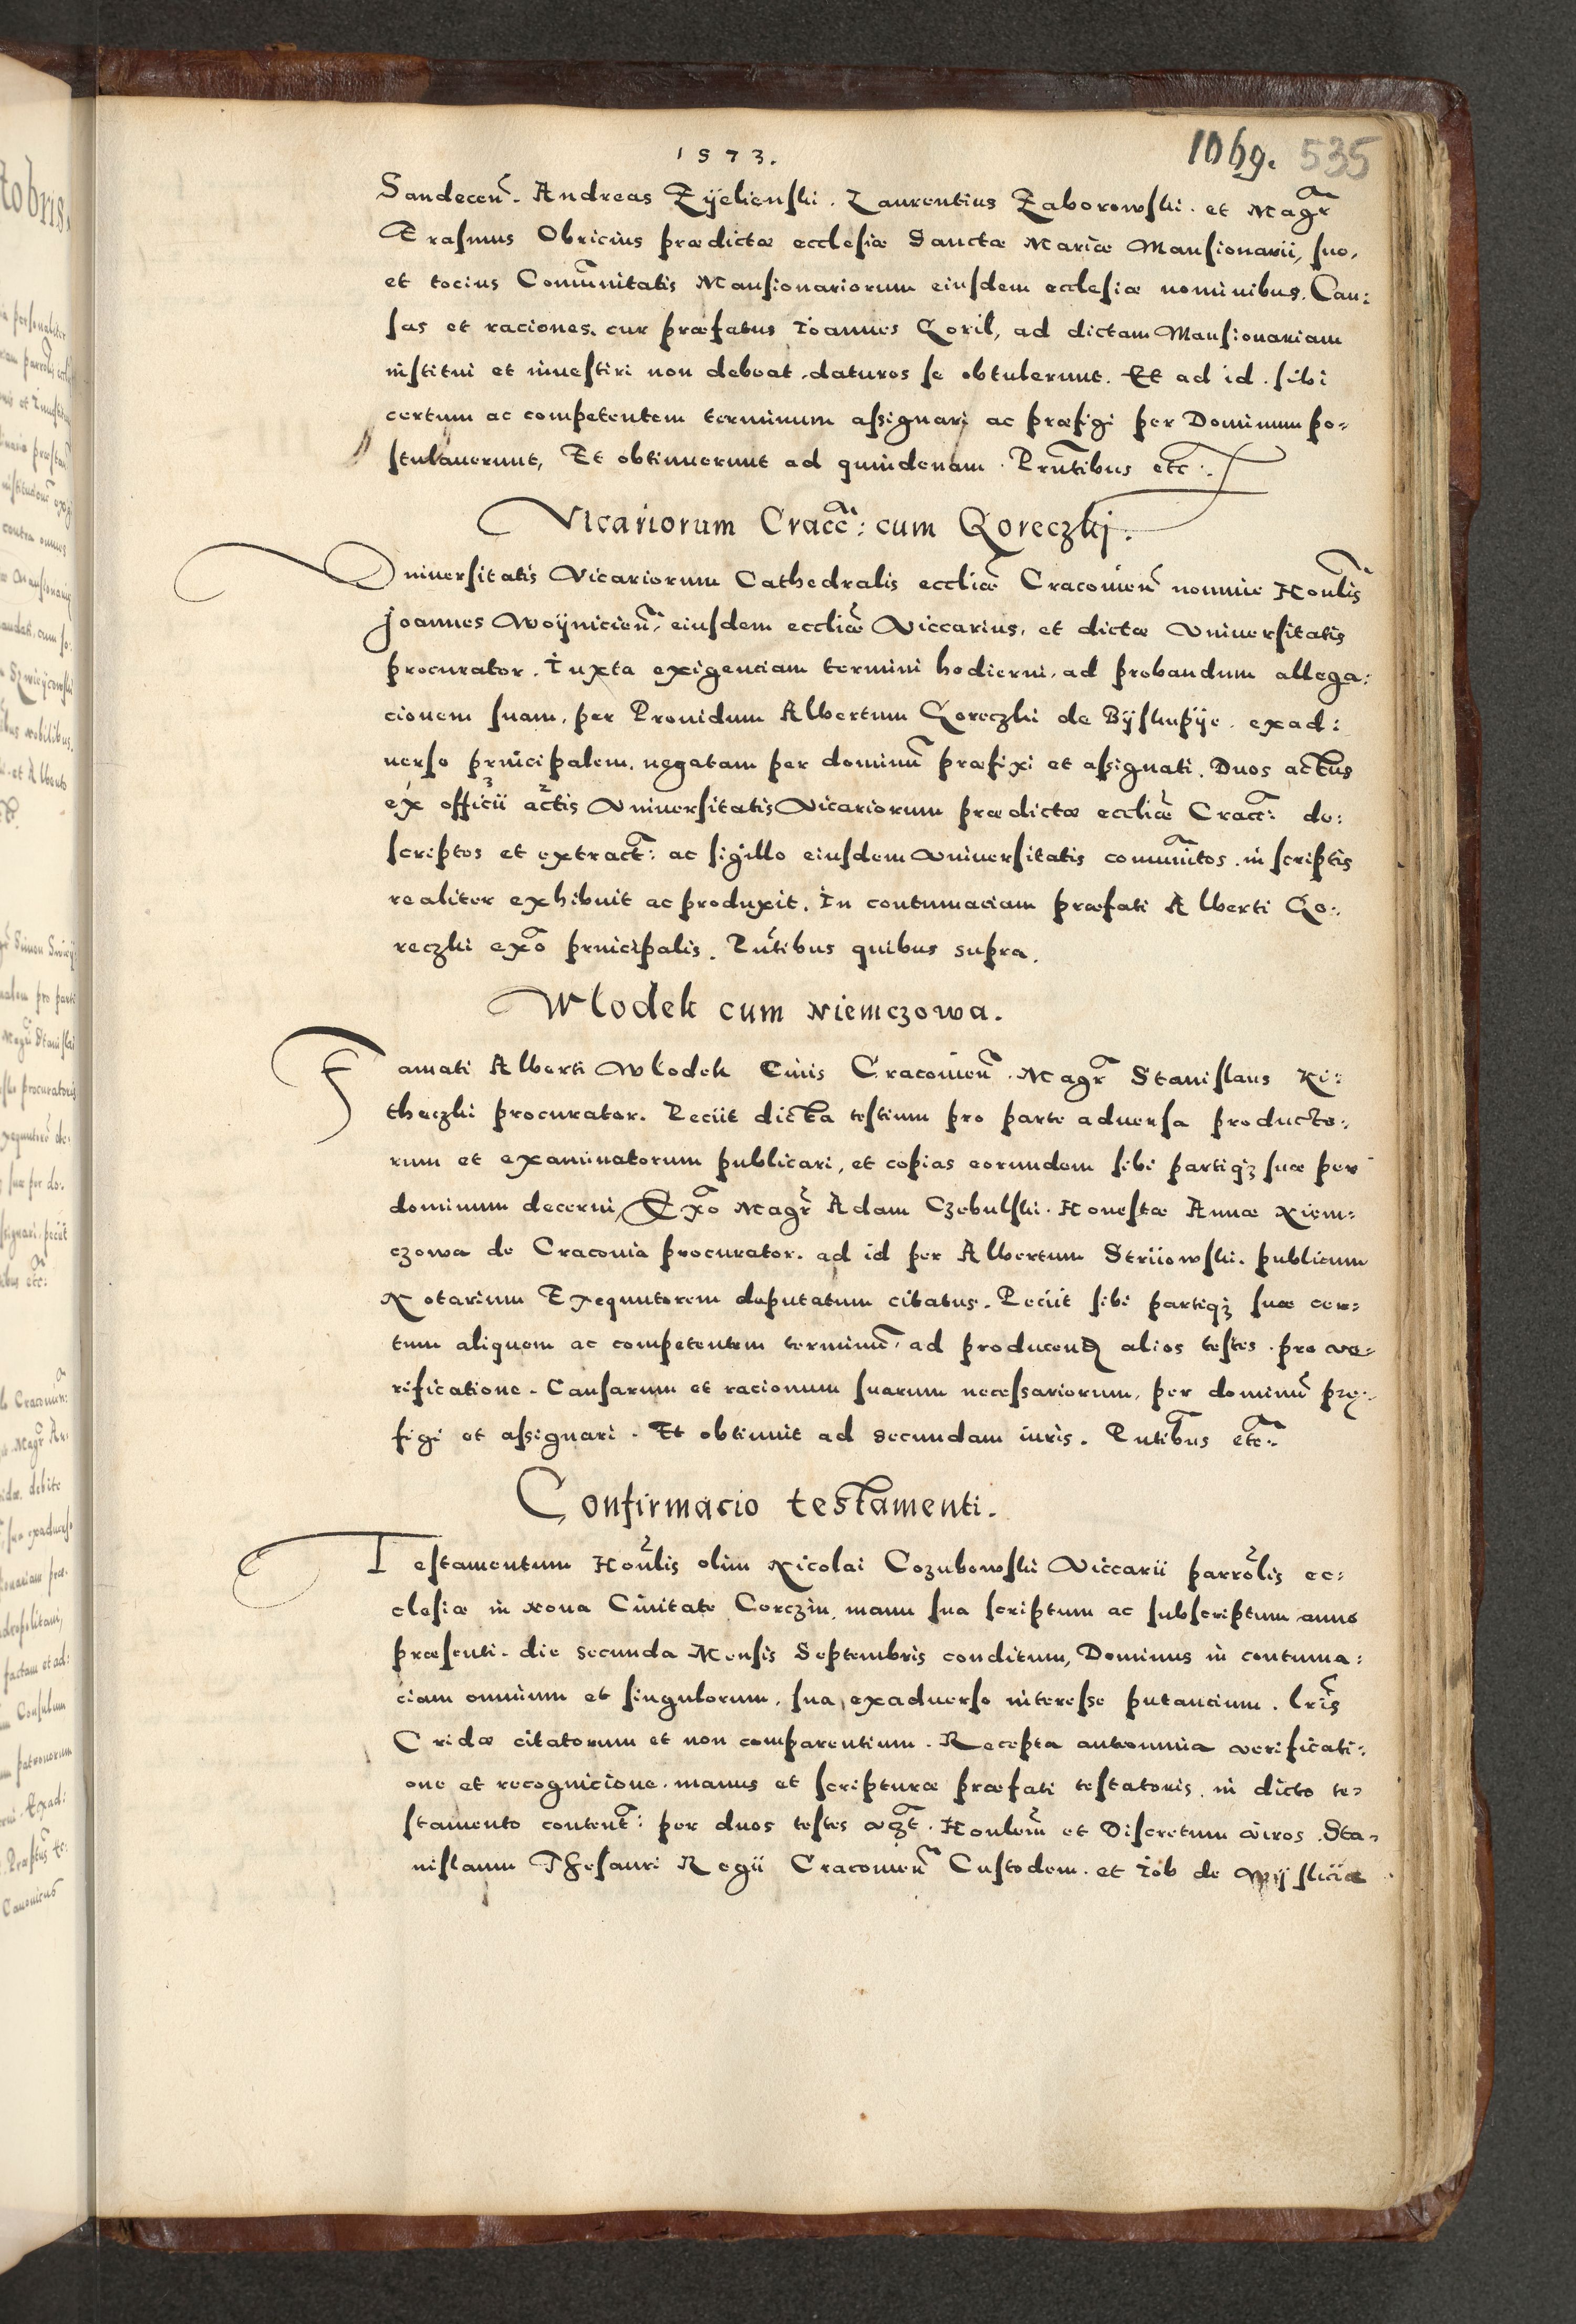 1573.
1069. 535
Sandeceñ. Andreas Zÿelienski. Laurentius Zaborowski. et Magr̃
Erasmus Obricius prædictæ ecclesiæ Sanctæ Mariæ Mansionarii, suo,
et tocius Com̃unitatis Mansionariorum eiusdem ecclesiæ nominibus. Cau:
sas et raciones. cur præfatus Ioannes Goril, ad dictam Mansionariam
institui et inuestiri non debeat. daturos se obtulerunt. Et ad id. sibi
certum ac competentem terminum assignari ac præfigi per Dominum po-
stulauerunt, Et obtinuerunt ad quindenam. Prñtibus etc:
Vicariorum Cracc̃: cum Goreczki.
Vniuersitatis Vicariorum Cathedralis eccliæ̃ Cracouieñ nomine Hoñlis
Joannes Woÿnicieñ, eiusdem eccliæ̃ Viccarius, et dictæ Vniuersitatis
procurator. Iuxta exigenciam termini hodierni, ad probandum allega:
cionem suam, per Prouidum Albertum Goreczki de Bÿskupÿe. exad:
uerso principalem. negatam per dominũ præfixi et assignati. Duos actus
ex officii actis Vniuersitatis Vicariorum prædictæ eccliæ̃ Cracc̃: de:
scriptos et extract̃: ac sigillo eiusdem Vniuersitatis com̃unitos. in scriptis
realiter exhibuit ac produxit. In contumaciam præfati Alberti Go:
reczki exõ principalis. Pñtibus quibus supra.
Wlodek cum Niemczowa.
Famati Alberti Wlodek Ciuis Cracouieñ. Magr̃ Stanislaus Ri:
theczki procurator. Peciit dicta testium pro parte aduersa producto:
rum et examinatorum publicari, et copias eorundem sibi partiqꝫ suæ per
dominum decerni, Exõ Magr̃ Adam Czebulski. Honestæ Annæ Niem:
czowa de Cracouia procurator. ad id per Albertum Striiowski. publicum
Notarium Exequutorem deputatum citatus. Peciit sibi partiqꝫ suæ cer:
tum aliquem ac competentem terminũ, ad producenꝺ alios testes. pro ve-
rificatione. Causarum et racionum suarum necessariorum, per dominũ præ:
figi et assignari. Et obtinuit ad secundam iuris. Pñtibus etc:
Confirmacio testamenti.
Testamentum Hoñlis olim Nicolai Cozubowski Viccarii parrõlis ec:
clesiæ in Noua Ciuitate Corczin, manu sua scriptum ac subscriptum anno
præsenti. die secunda Mensis Septembris conditum, Dominus in contuma:
ciam omnium et singulorum, sua exaduerso interesse putancium. lr̃is
Cridæ citatorum et non comparentium. Recepta antomnia verificati:
one et recognicione. manus et scripturæ præfati testatoris. in dicto te:
stamento content̃: per duos testes vꝫt̃. Hoñlem et Discretum viros. Sta-
nislaum Thesauri Regii Cracouieñ Custodem. et Iob de Wÿslicia